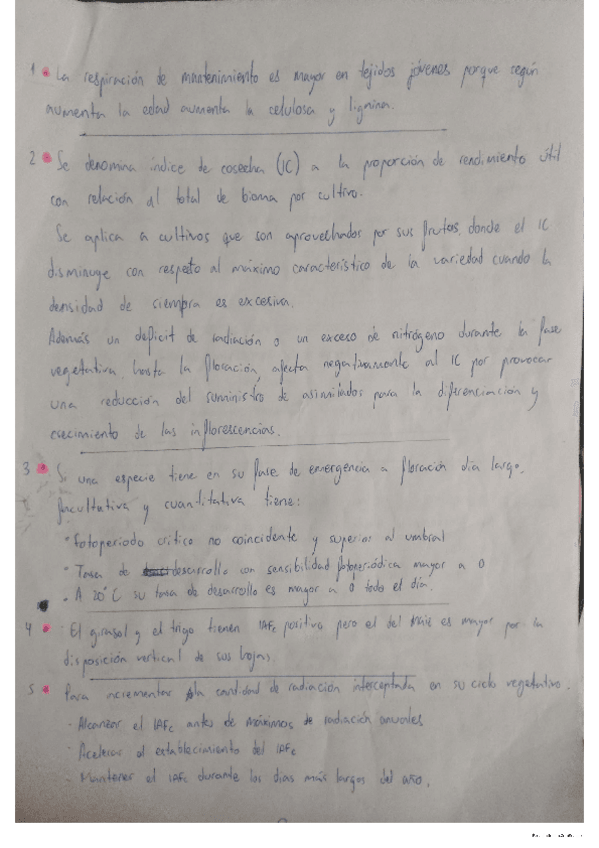 1 • La respiración de mantenimiento es mayor en tejidos jóvenes porque según
aumenta la edad aumenta la celulosa y lignina.
2 • Se denomina índice de cosecha (IC) a la proporción de rendimiento útil
con relación al total de bioma por cultivo.
Se aplica a cultivos que son aprovechados por sus frutos, donde el IC
disminuye con respeto al máximo característico de la variedad cuando la
densidad de siembra es excesiva.
Además un deficit de radiación o un exceso de nitrógeno durante la fase
vegetativa, hasta la floración, afecta negativamente al IC por provocar
una reducción del suministro de asimilados para la diferenciación y
crecimiento de las inflorescencias.
3 • Si una especie tiene en su fase de emergencia a floración dia largo,
facultativa y cuantitativa tiene:
• Fotoperiodo crítico no coincidente y superior al umbral
• Tasa de desarrollo con sensibilidad fotoperiódica mayor a 0
• A 20°C su tasa de desarrollo es mayor a 0 todo el día.
4 • El girasol y el trigo tienen IAFc positiva pero el del Maís es mayor por la
disposición vertical de sus hojas
5 • Para incrementar la cantidad de radiación interceptada en su ciclo vegetativo.
- Alcanzar el IAFc antes de máximos de radiación anuales
- Acelerar el establecimiento del IAFc
- Mantener el IAFc durante los dias más largos del año.